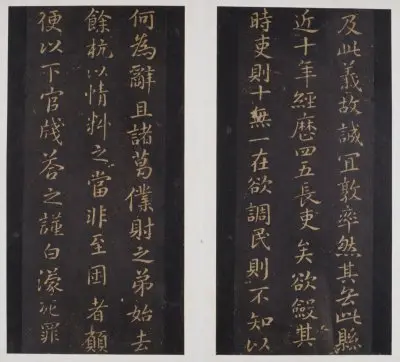 及此義故誠宜敦率然其去此縣
近十年經歷四五長吏矣欲斂其
時吏則十無一在欲調民則不知以
何為辭且諸葛僕射之弟始去
餘杭以情料之當非至困者願
便以下官牋答之謹白濛死罪